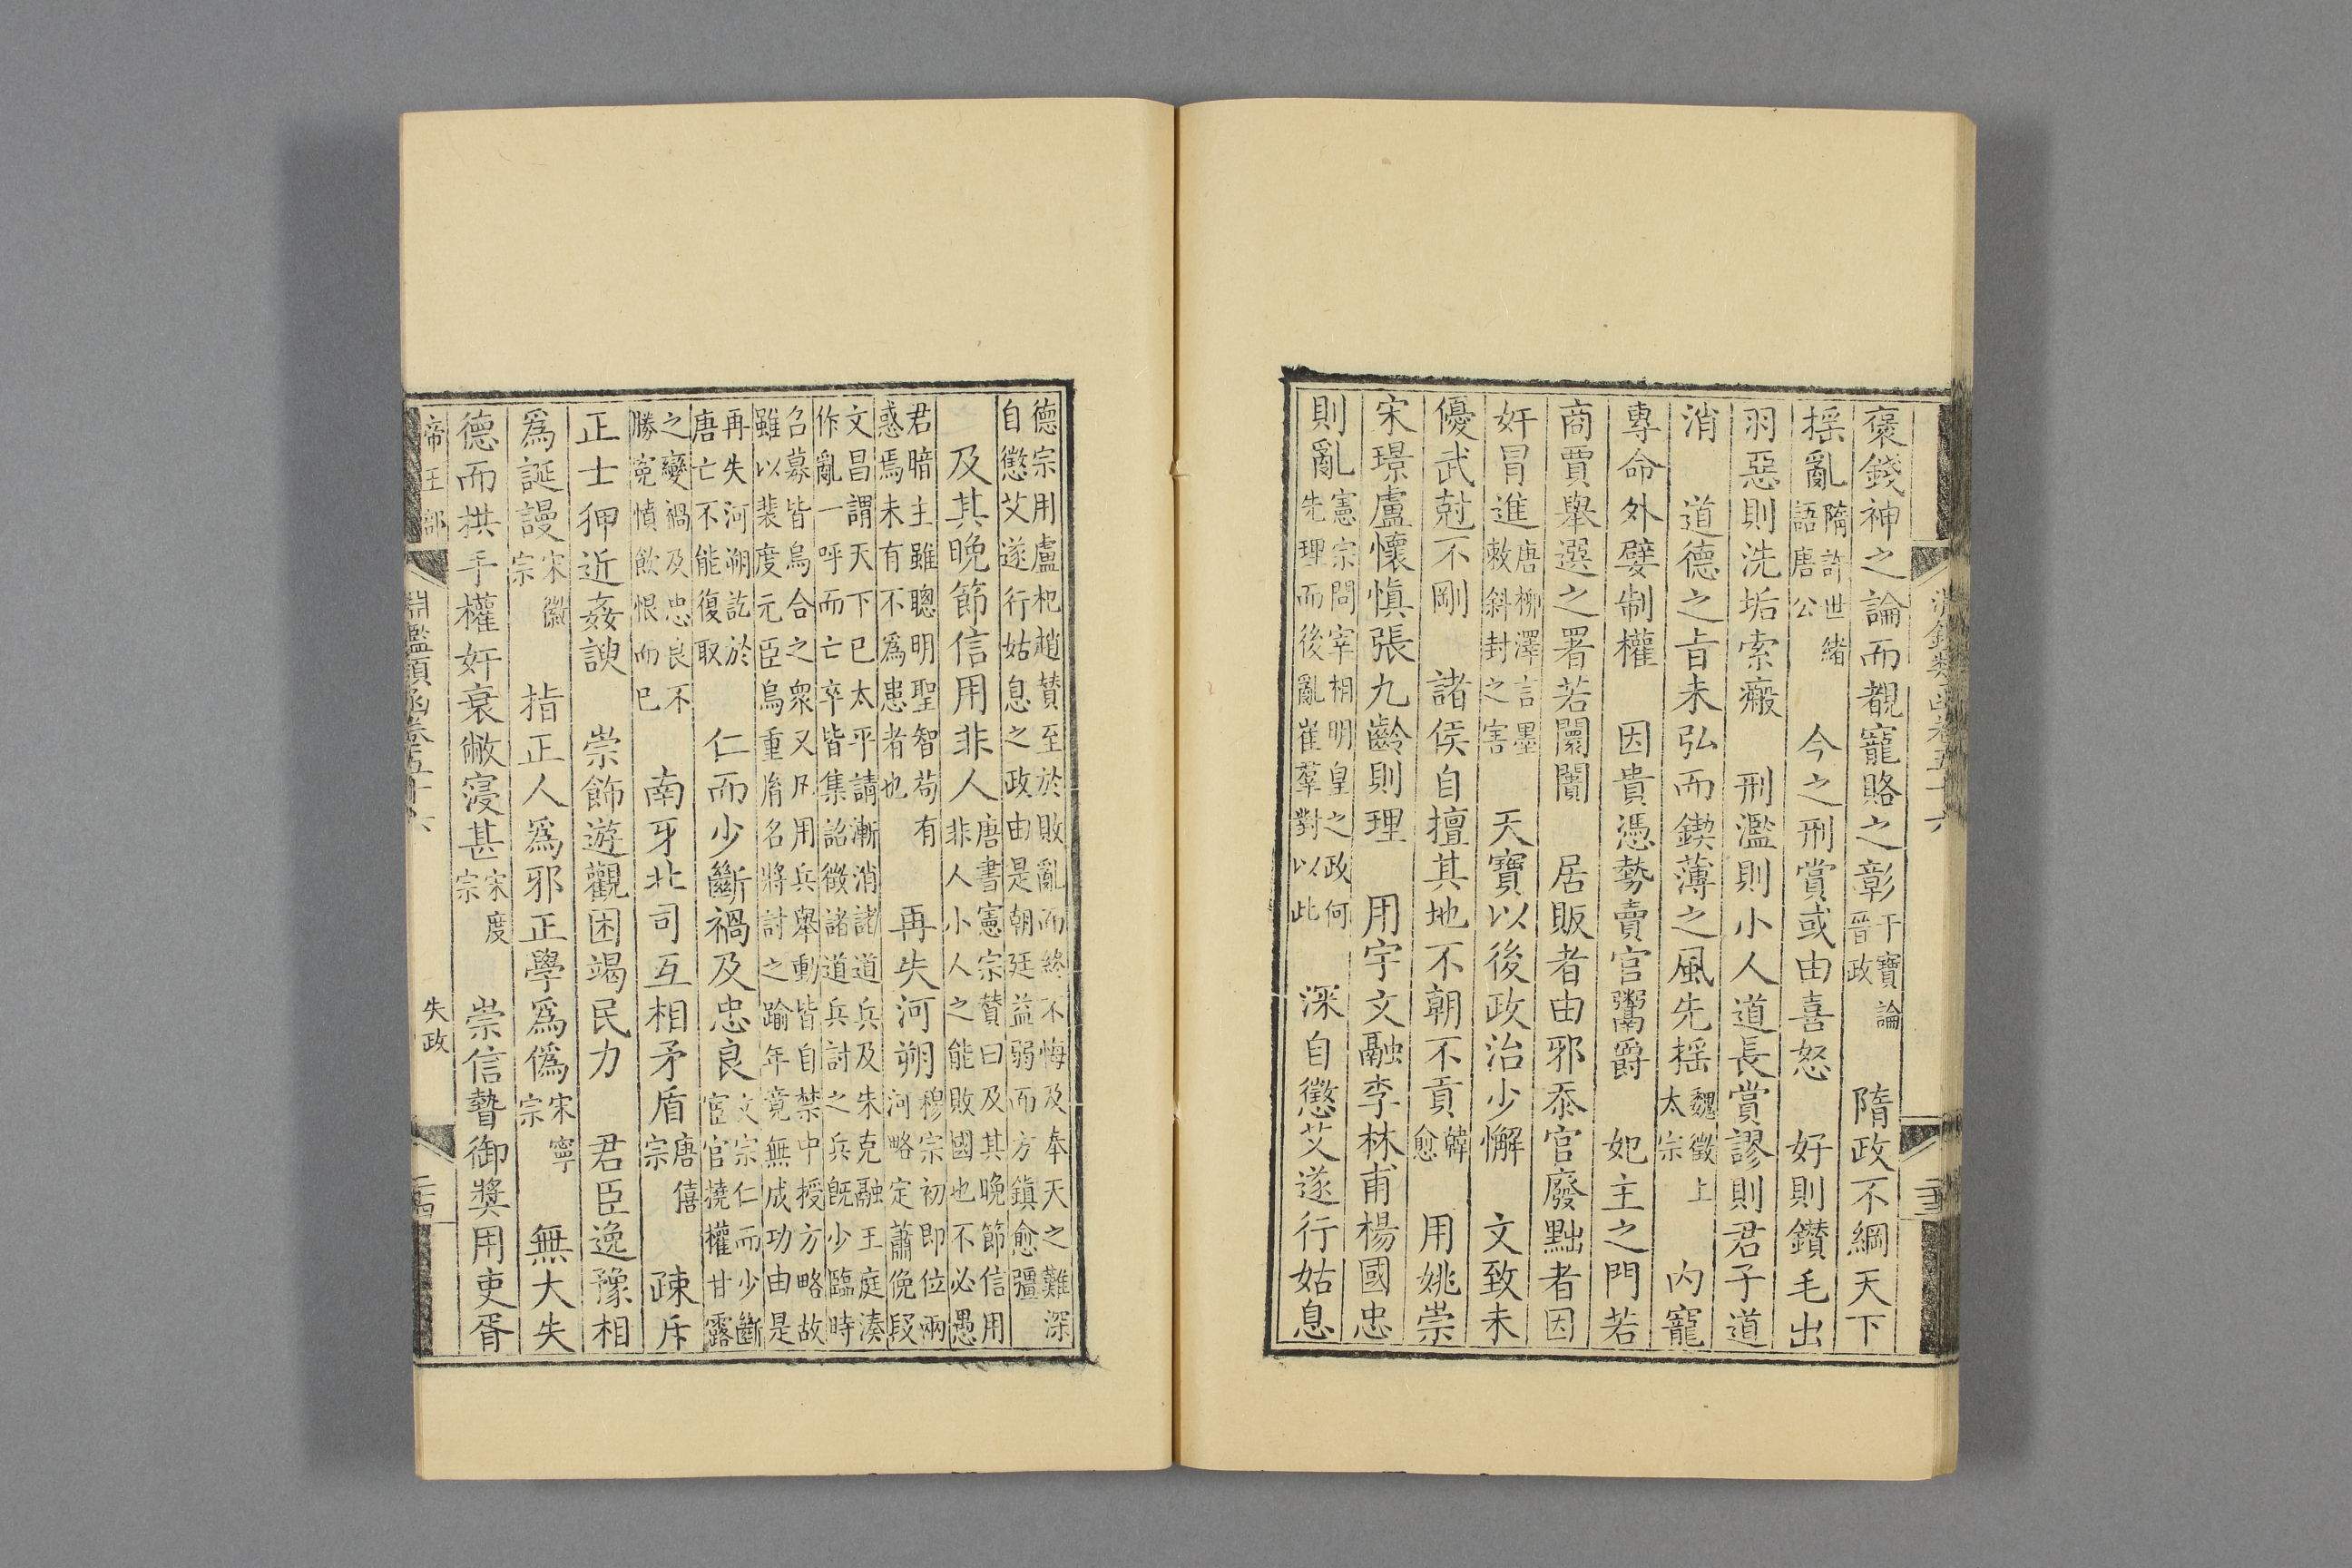 褒錢神之論而覩寵賂之彰干寶論晉政　隋政不綱天下
揺亂隋許世緒語唐公　今之刑賞或由喜怒　好則鑽毛出
羽惡則洗垢索瘢　刑濫則小人道長賞謬則君子道
消　道德之旨未弘而鍥薄之風先揺魏徵上太宗　内寵
專命外嬖制權　因貴憑勢賣官鬻爵　妃主之門若
商賈舉選之署若闤闠　居販者由邪忝官廢黜者因
奸冒進唐柳澤言墨敕斜封之害　天寶以後政治少懈　文致未
優武尅不剛　諸侯自擅其地不朝不貢韓愈　用姚崇
宋璟盧懷慎張九齡則理　用宇文融李林甫楊國忠
則亂憲宗問宰相明皇之政何先理而後亂崔羣對以此　深自懲艾遂行姑息
德宗用盧杞趙贊至於敗亂而終不悔及奉天之難深
自懲艾遂行姑息之政由是朝廷益弱而方鎮愈彊
及其晚節信用非人唐書憲宗贊曰及其晚節信用非人小人之能敗國也不必愚
君暗主雖聰明聖智苟有惑焉未有不爲患者也　再失河朔穆宗初即位兩河略定蕭俛段
文昌謂天下已太平請漸消諸道兵及朱克融王庭湊
作亂一呼而亡卒皆集詔徵諸道兵討之兵既少臨時
召募皆烏合之衆又凡用兵舉動皆自禁中授方略故
雖以裴度元臣烏重胤名將討之踰年竟無成功由是
再失河朔訖於唐亡不能復取　仁而少斷禍及忠良文宗仁而少斷宦官撓權甘露
之變禍及忠良不勝寃憤飲恨而已　南牙北司互相矛盾唐僖宗　疎斥
正士狎近姦諛　崇飾遊觀困竭民力　君臣逸豫相
爲誕謾宋徽宗　指正人爲邪正學爲僞宋寧宗　無大失
德而拱手權奸衰敝寖甚宋度宗　崇信贄御獎用吏胥
帝王部　淵鑑類函卷五十六　失政